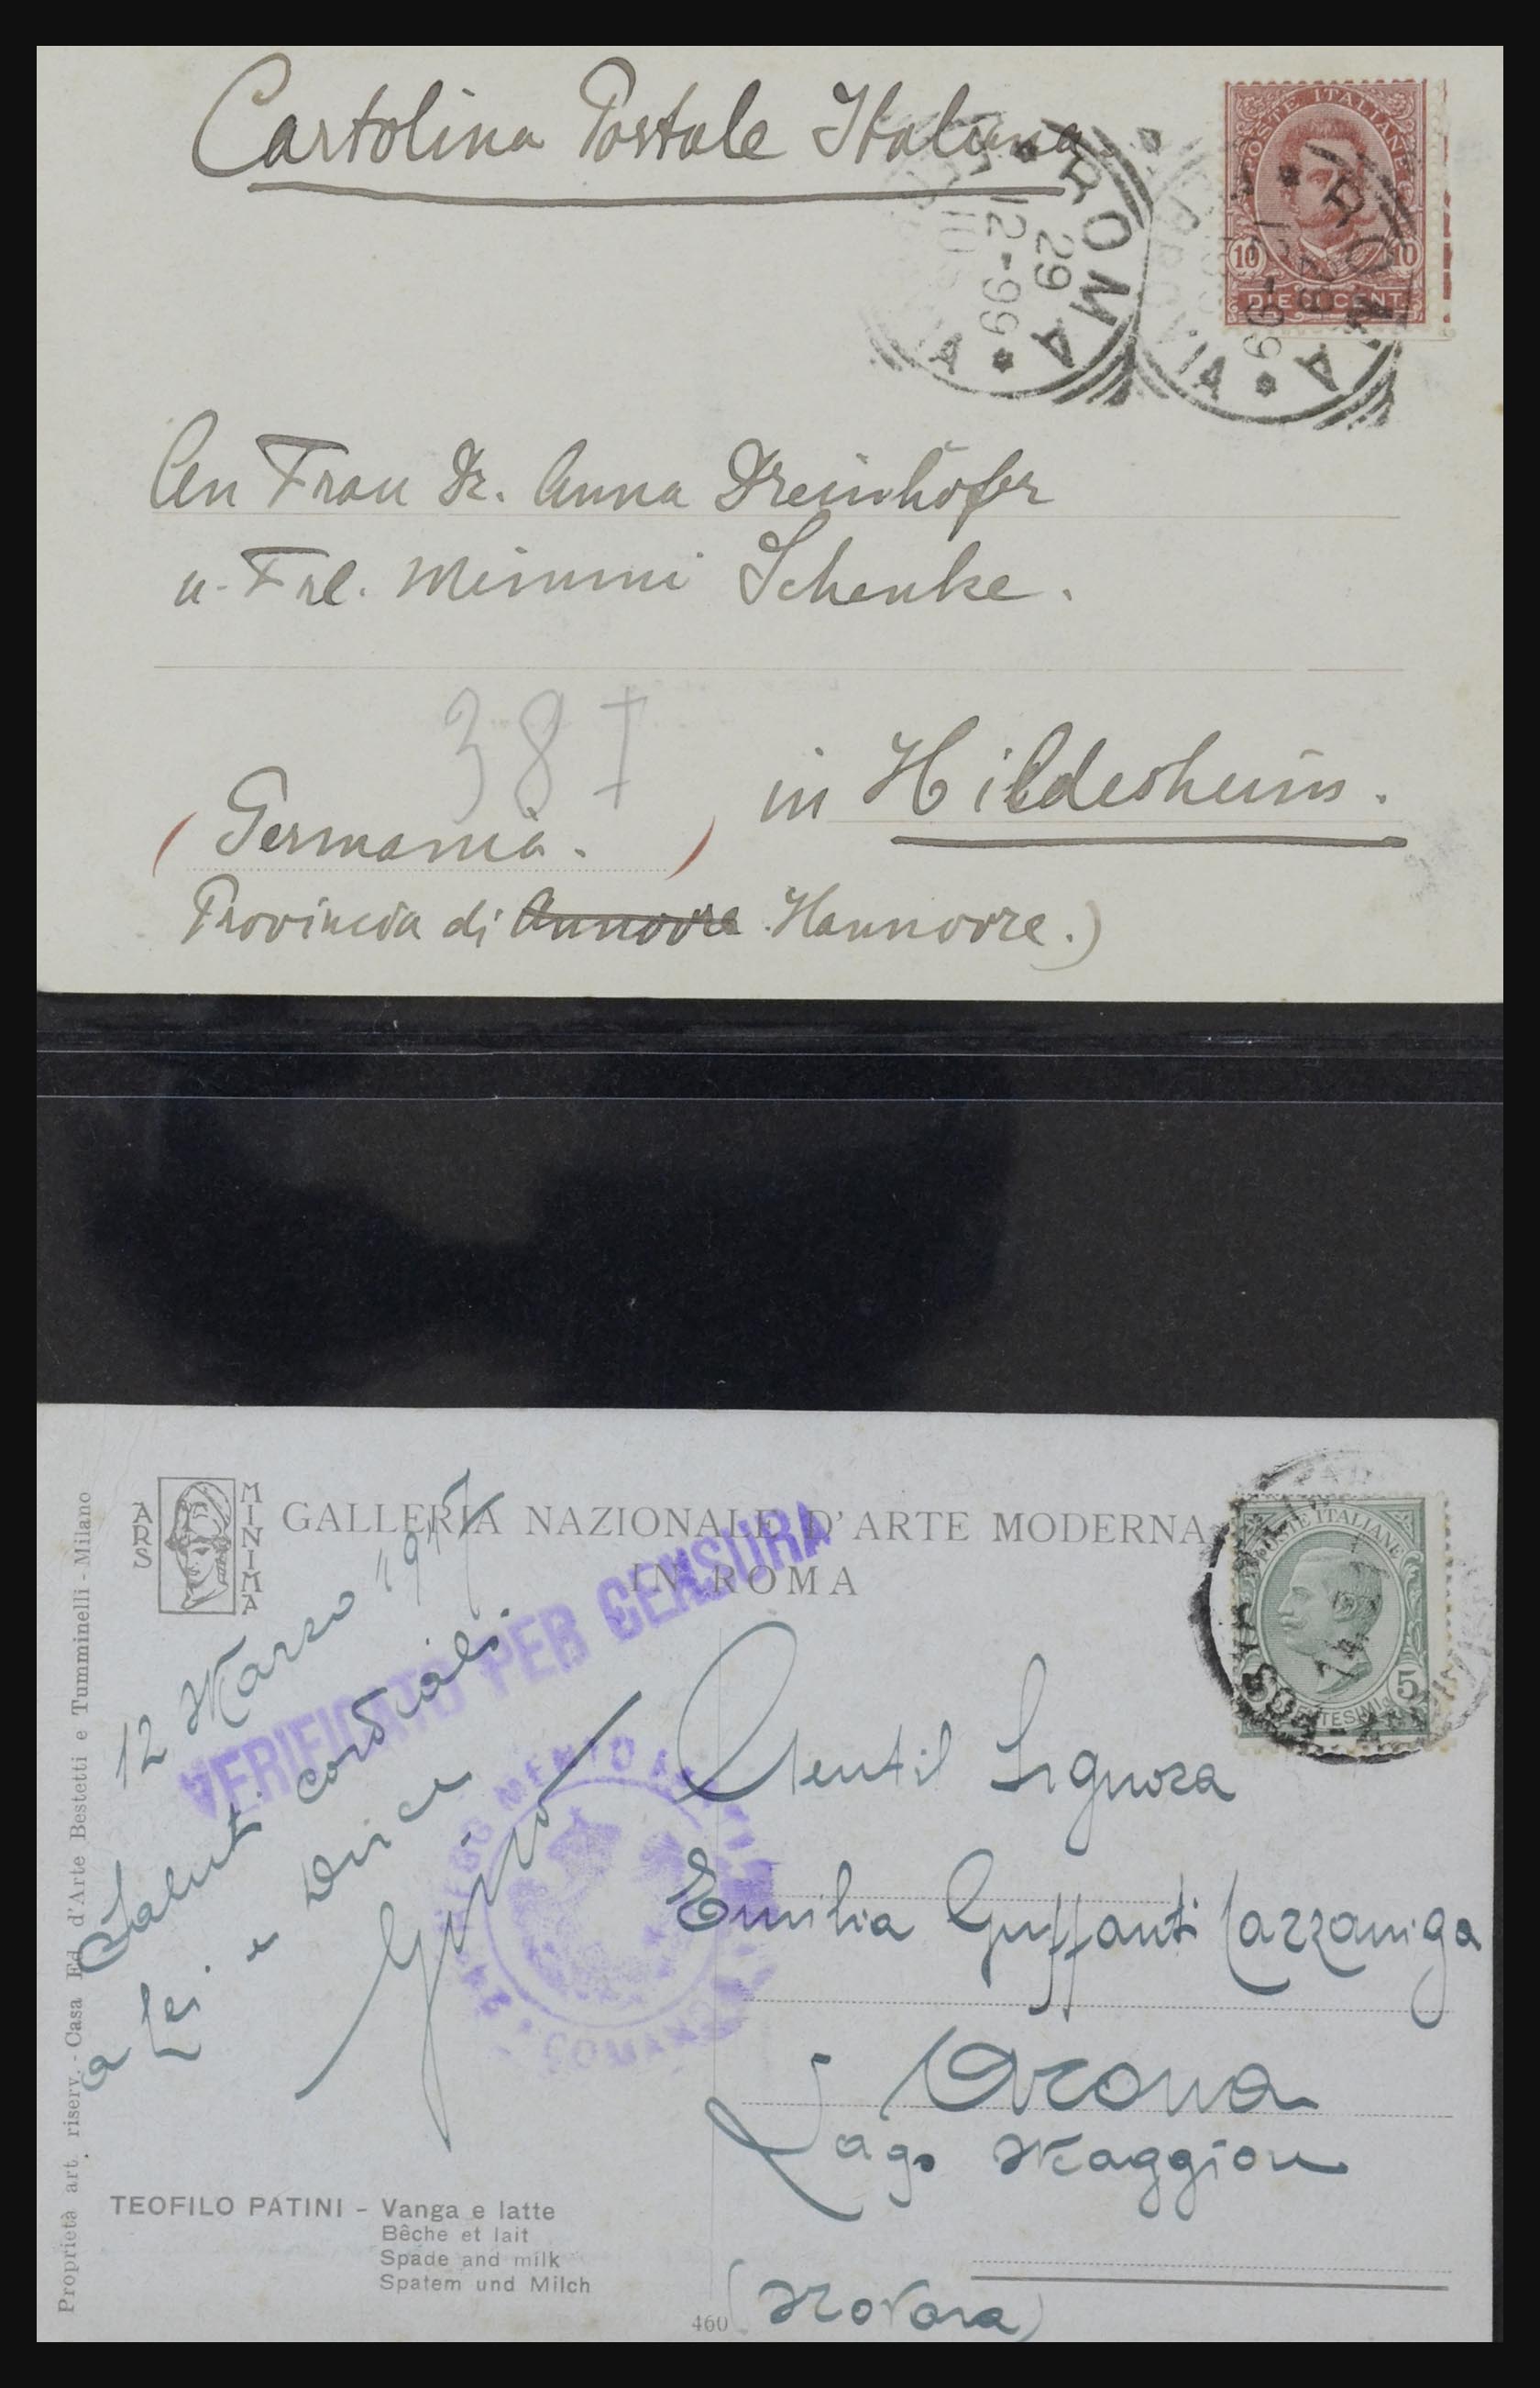 Cartolina Postale Italiana
POSTE ITALIANE
10 10
DIECI CENT.
ROMA
29
12-99
10 S
FERROVIA
ROMA
12-99
FERROVIA
An Frau Dr. Anna Dreinhöfer
u. Frl. Mimmi Schenke.
38
in Hildesheim.
(Germania.)
Provincia di Annovre Hannovre.)
ARS MINIMA
GALLERIA NAZIONALE D'ARTE MODERNA
IN ROMA
POSTE ITALIANE
5
CENTESIMI
VERIFICATO PER CENSURA
COMANDO
12 Marzo 1917
Saluti cordiali
a Lei e Dirce
Gino
Gentil Signora
Emilia Guffanti Cazzaniga
Arona
Lago Maggiore
(Novara)
TEOFILO PATINI - Vanga e latte
Bêche et lait
Spade and milk
Spatem und Milch
460
Proprietà art. riserv. - Casa Ed. d'Arte Bestetti e Tumminelli - Milano